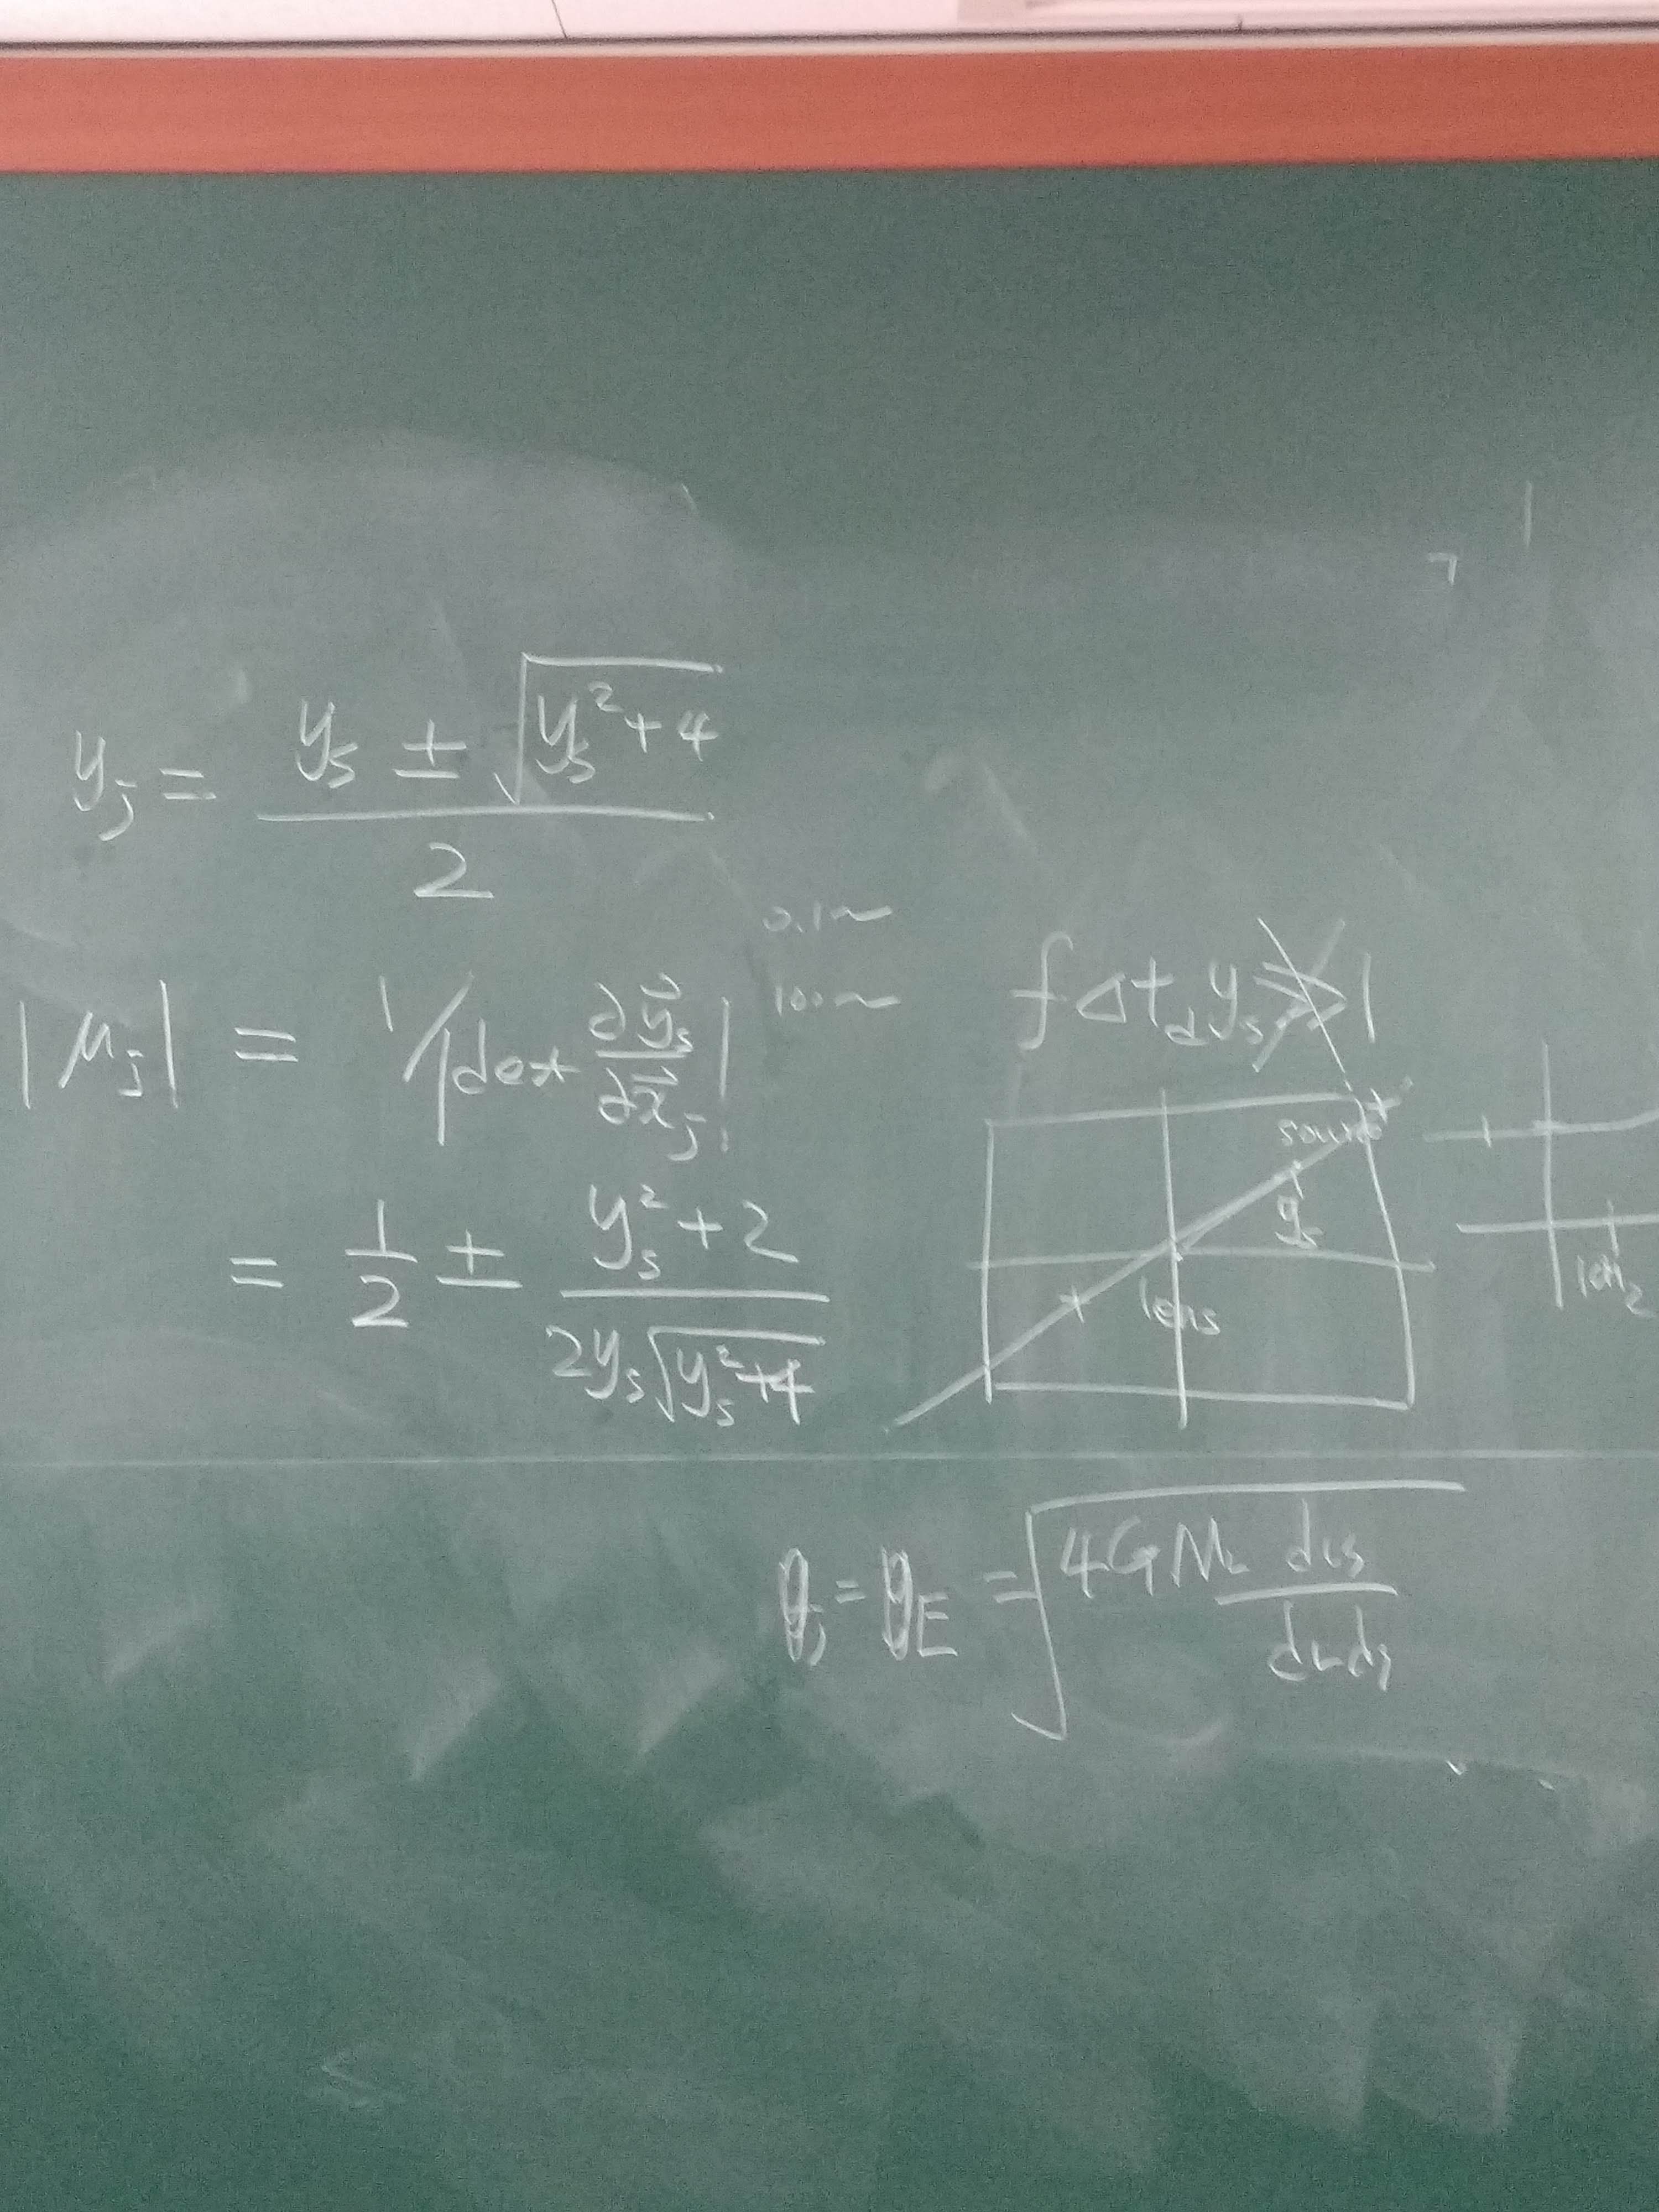 y_j = (y_s ± √(y_s² + 4)) / 2
0.1~
100~
|μ_j| = 1/|det ∂y⃗_s/∂x⃗_j|
= 1/2 ± (y_s² + 2) / (2y_s√(y_s² + 4))
fΔt_d y_s ≫ 1
source
y_s
lens
10M
θ_j = θ_E = √(4GM_L d_LS / d_L d_S)